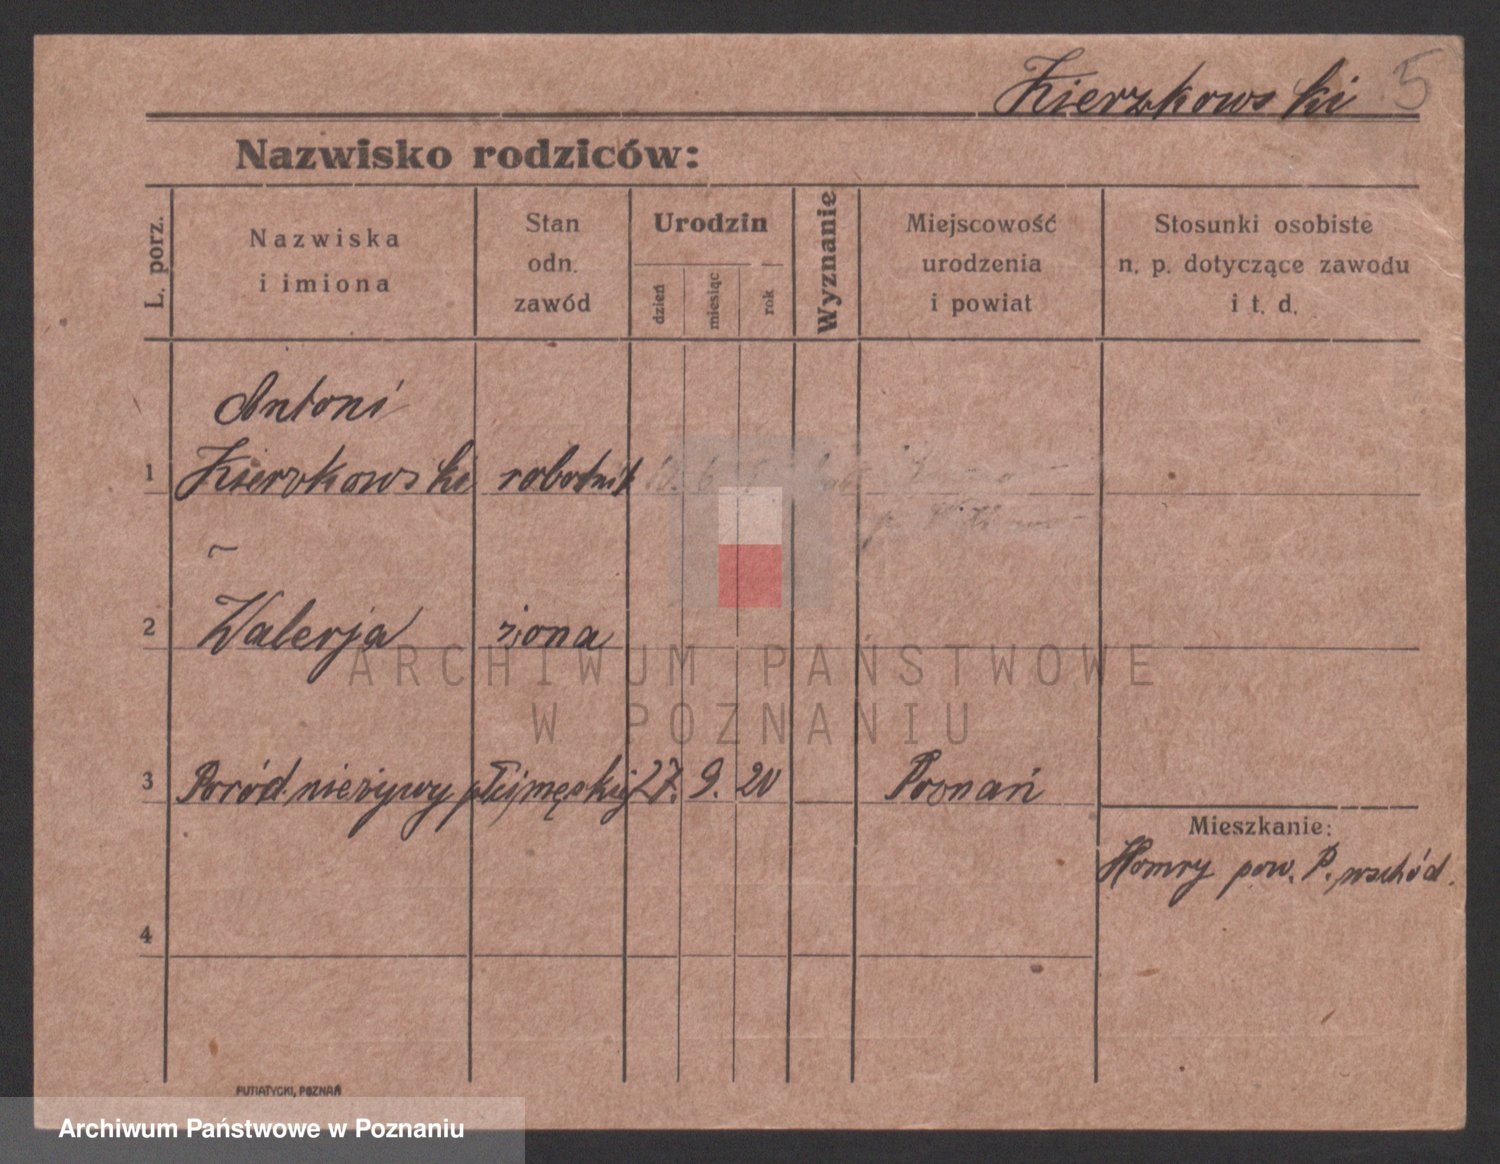 Kierzkowski 5
Nazwisko rodziców:
L. porz.
Nazwiska
i imiona
Stan
odn.
zawód
Urodzin
dzień
miesiąc
rok
Wyznanie
Miejscowość
urodzenia
i powiat
Stosunki osobiste
n. p. dotyczące zawodu
i t. d.
Antoni
1 Kierzkowski robotnik
~
2 Walerja żona
ARCHIWUM PAŃSTWOWE
W POZNANIU
3 Poród nieżywy płci męskiej 27. 9. 20 Poznań
Mieszkanie:
pow. P. wschód.
4
PUTIATYCKI, POZNAŃ
Archiwum Państwowe w Poznaniu